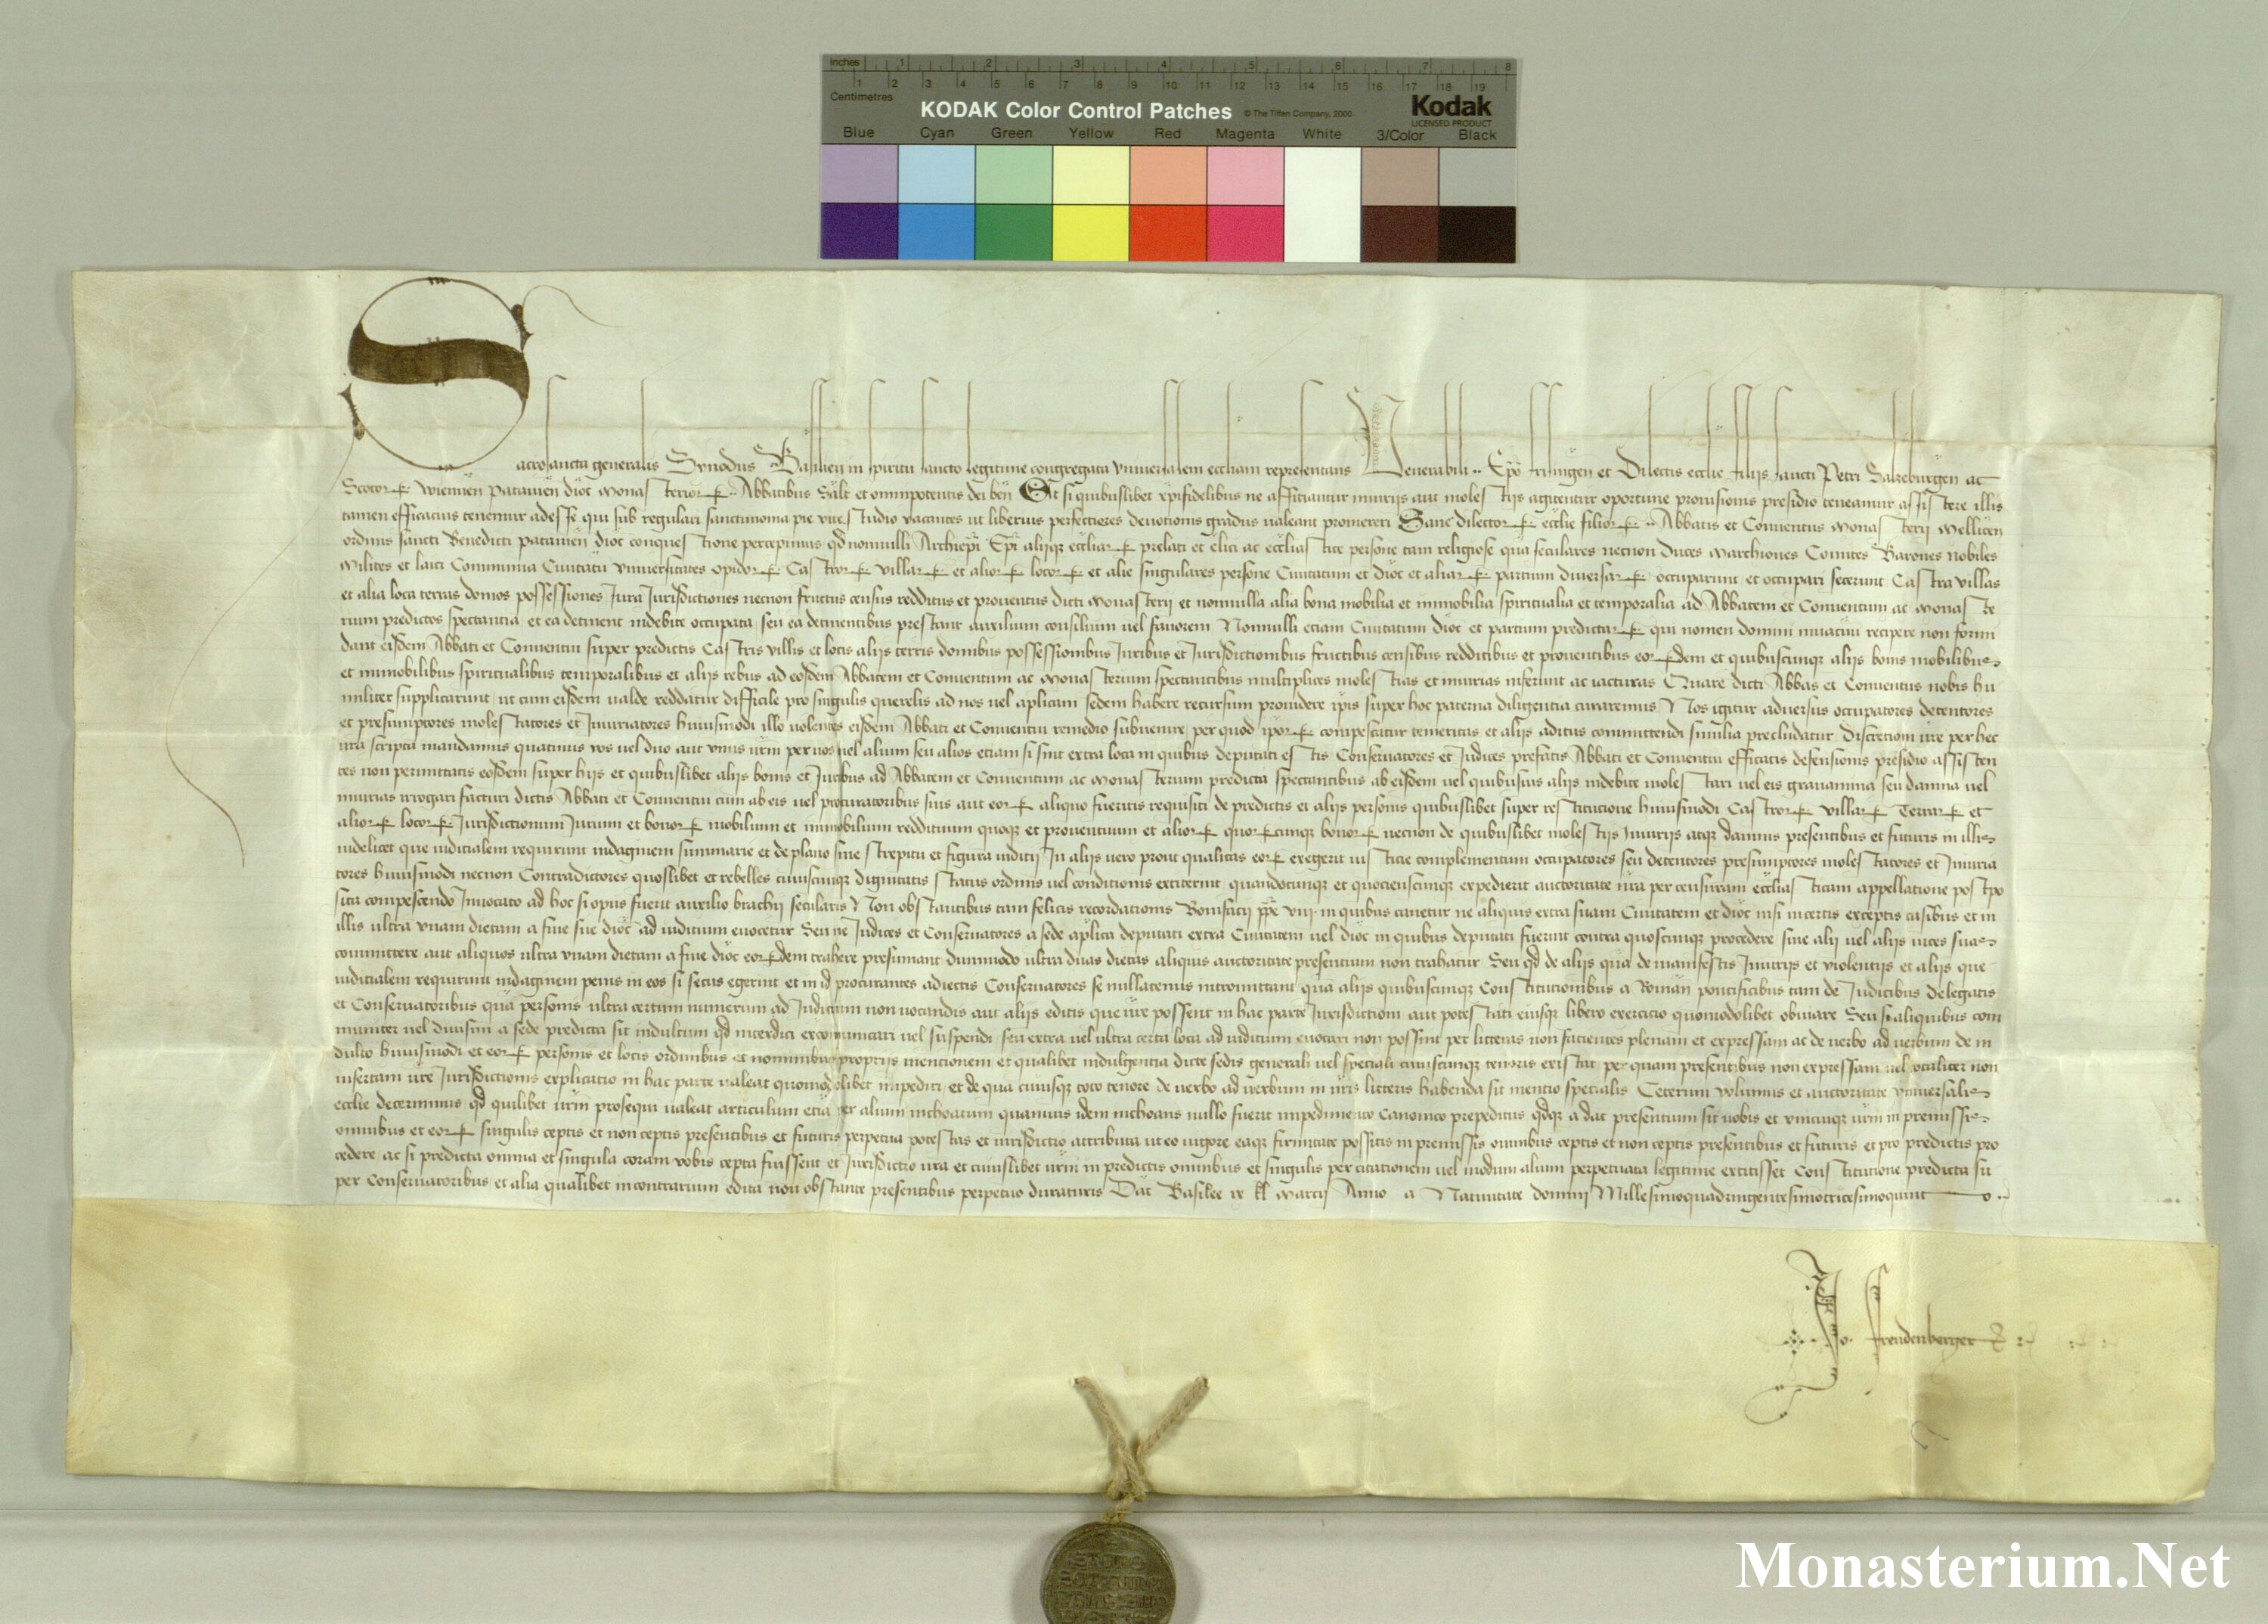 Inches 1 2 3 4 5 6 7 8
1 2 3 4 5 6 7 8 9 10 11 12 13 14 15 16 17 18 19
Centimetres
KODAK Color Control Patches © The Tiffen Company, 2000 Kodak
LICENSED PRODUCT
Blue Cyan Green Yellow Red Magenta White 3/Color Black
Sacrosancta generalis Synodus Basilien in spiritu sancto legitime congregata vniuersalem eccliam representans Venerabili .. Epo Frisingen et Dilectis ecclie filijs sancti Petri Salzeburgen ac
Scotorꝝ wiennen patauien dioc monasteriorꝝ .. Abbatibus Salt et omnipotentis dei ben Et si quibuslibet xpifidelibus ne afficiantur iniurijs aut molestijs agitentur oportune prouisionis presidio teneamur assistere illis
tamen efficacius tenemur adesse qui sub regulari sanctimonia pie vite studio vacantes ut liberius perfectiores deuotionis gradus ualeant promereri Sane dilectorꝝ ecclie filiorꝝ .. Abbatis et Conuentus monasterij mellicen
ordinis sancti Benedicti patauien dioc conquestione percepimus qd nonnulli Archiepi Epi alijqꝫ eccliarꝝ prelati et clici ac ecclesiastice persone tam religiose qua seculares necnon duces marchiones Comites Barones nobiles
milites et laici Communia Ciuitatu vniuersitates opidorꝝ Castrorꝝ villarꝝ et aliorꝝ locorꝝ et alie singulares persone Ciuitatum et dioc et aliarꝝ partium diuersarꝝ occuparunt et occupari fecerunt Castra villas
et alia loca terras domos possessiones Jura Jurisdictiones necnon fructus census redditus et prouentus dicti monasterij et nonnulla alia bona mobilia et immobilia spiritualia et temporalia ad Abbatem et Conuentum ac monaste
rium predictos spectantia et ea detinent indebite occupata seu ea detinentibus prestant auxilium consilium uel fauorem Nonnulli etiam Ciuitatum dioc et partium predictarꝝ qui nomen domini inuacuu recipere non formi
dant eisdem Abbati et Conuentui super predictis Castris villis et locis alijs terris domibus possessionibus Juribus et Jurisdictionibus fructibus censibus redditibus et prouentibus eorꝝdem et quibuscunqꝫ alijs bonis mobilibus
et immobilibus spiritualibus temporalibus et alijs rebus ad eosdem Abbatem et Conuentum ac monasterium spectantibus multiplices molestias et iniurias inferunt ac iacturas Quare dicti Abbas et Conuentus nobis hu
militer supplicarunt ut cum eisdem ualde reddatur difficile pro singulis querelis ad nos uel aplicam sedem habere recursum prouidere ipis super hoc paterna diligentia curaremus Nos igitur aduersus occupatores detentores
et presumptores molestatores et Iniuriatores huiusmodi illo uolentes eisdem Abbati et Conuentui remedio subuenire per quod iporꝝ compescatur temeritas et alijs aditus committendi similia precludatur discretioni ure per hec
ura scripta mandamus quatinus vos uel duo aut vnus urm per uos uel alium seu alios etiam si sint extra loca in quibus deputati estis Conseruatores et Judices prefatis Abbati et Conuentui efficatis defensionis presidio assisten
tes non permittatis eosdem super hijs et quibuslibet alijs bonis et Juribus ad Abbatem et Conuentum ac monasterium predicta spectantibus ab eisdem uel quibusuis alijs indebite molestari uel eis grauamina seu damna uel
iniurias irrogari facturi dictis Abbati et Conuentui cum ab eis uel procuratoribus suis aut eorꝝ aliquo fueritis requisiti de predictis et alijs personis quibuslibet super restitutione huiusmodi Castrorꝝ villarꝝ Terrarꝝ et
aliorꝝ locorꝝ Jurisdictionum Jurium et bonorꝝ mobilium et immobilium reddituum quoqꝫ et prouentuum et aliorꝝ quorꝝcunqꝫ bonorꝝ necnon de quibuslibet molestijs Iniurijs atqꝫ damnis presentibus et futuris in illis
uidelicet que iudicialem requirunt indaginem summarie et de plano sine strepitu et figura iudicij In alijs uero prout qualitas eorꝝ exegerit iusticie complementum occupatores seu detentores presumptores molestatores et Iniuria
tores huiusmodi necnon Contradictores quoslibet et rebelles cuiuscunqꝫ dignitatis status ordinis uel conditionis extiterint quandocunqꝫ et quocienscunqꝫ expedierit auctoritate nra per censuram ecclesiasticam appellatione postpo
sita compescendo Inuocato ad hoc si opus fuerit auxilio brachij secularis Non obstantibus tam felicis recordationis Bonifacij ppe viij in quibus cauetur ne aliquis extra suam Ciuitatem et dioc nisi in certis exceptis casibus et in
illis ultra vnam dietam a fine sue dioc ad iudicium euocetur Seu ne Judices et Conseruatores a sede aplica deputati extra Ciuitatem uel dioc in quibus deputati fuerint contra quoscunqꝫ procedere siue alij uel alijs uices suas
committere aut aliquos ultra vnam dietam a fine dioc eorꝝdem trahere presumant dummodo ultra duas dietas aliquis auctoritate presentium non trahatur Seu qd de alijs qua de manifestis Iniurijs et violentijs et alijs que
iudicialem requirunt indaginem penis in eos si secus egerint et in id procurantes adiectis Conseruatores se nullatenus intromittant qua alijs quibuscunqꝫ Constitutionibus a Roman pontificibus tam de Judicibus delegatis
et Conseruatoribus qua personis ultra certum numerum ad Judicium non uocandis aut alijs editis que ure possent in hac parte Jurisdictioni aut potestati eiusqꝫ libero exercicio quomodolibet obuiare Seu si aliquibus com
muniter uel diuisim a sede predicta sit indultum qd interdici excomunicari uel suspendi seu extra uel ultra certa loca ad iudicium euocari non possint per litteras non facientes plenam et expressam ac de uerbo ad uerbum de in
dulto huiusmodi et eorꝝ personis et locis ordinibus et nominibus proprijs mentionem et qualibet indulgentia dicte sedis generali uel speciali cuiuscunqꝫ tenoris existat per quam presentibus non expressam uel totaliter non
insertam ure Jurisdictionis explicatio in hac parte ualeat quomodolibet impediri et de qua cuiusqꝫ toto tenore de uerbo ad uerbum in uris litteris habenda sit mentio specialis Ceterum volumus et auctoritate vniuersalis
ecclie decernimus qd quilibet urm prosequi ualeat articulum etia per alium inchoatum quamuis idem inchoans nullo fuerit impedimento Canonico prepeditus qdqꝫ a dat presentium sit uobis et vnicuiqꝫ urm in premissis
omnibus et eorꝝ singulis ceptis et non ceptis presentibus et futuris perpetua potestas et iurisdictio attributa ut eo uigore eaqꝫ firmitate possitis in premissis omnibus ceptis et non ceptis presentibus et futuris et pro predictis pro
cedere ac si predicta omnia et singula coram vobis cepta fuissent et Jurisdictio ura et cuiuslibet urm in predictis omnibus et singulis per citationem uel modum alium perpetuata legitime extitisset Constitutione predicta su
per Conseruatoribus et alia qualibet incontrarium edita non obstante presentibus perpetuo duraturis Dat Basilee ix kl marcij Anno a Natiuitate domini Millesimoquadringentesimotricesimoquinto ..
Jo. Freudenberger
Monasterium.Net